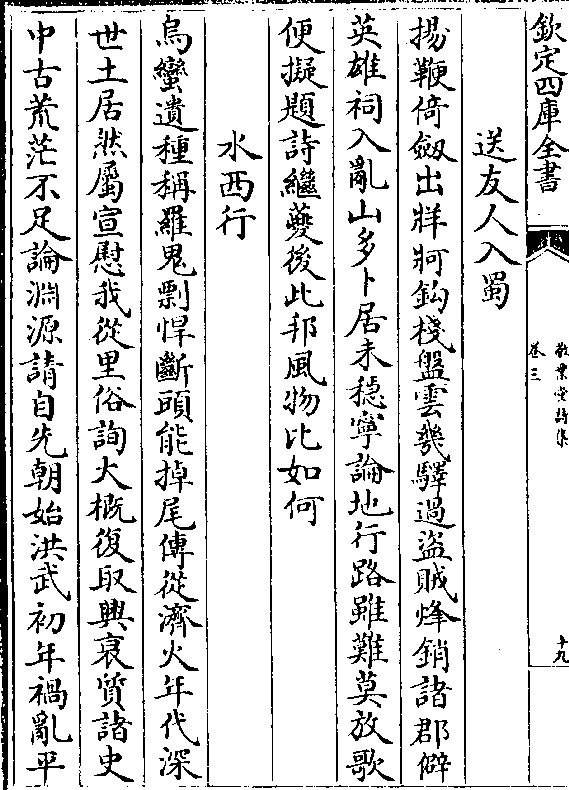 欽定四庫全書
敬業堂詩集
卷三
十九
送友人入蜀
揚鞭倚劔出牂牁鈎棧盤雲幾驛過盜賊烽銷諸郡僻
英雄祠入亂山多卜居未穏寧論地行路雖難莫放歌
便擬題詩繼夔後此邦風物比如何
水西行
烏蠻遺種稱羅鬼剽悍斷頭能掉尾傳從濟火年代深
世土居然屬宣慰我從里俗詢大概復取興衰質諸史
中古荒茫不足論淵源請自先朝始洪武初年禍亂平